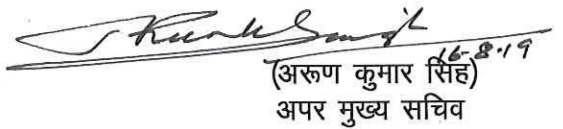 16-8-19
(अरूण कुमार सिंह)
अपर मुख्य सचिव